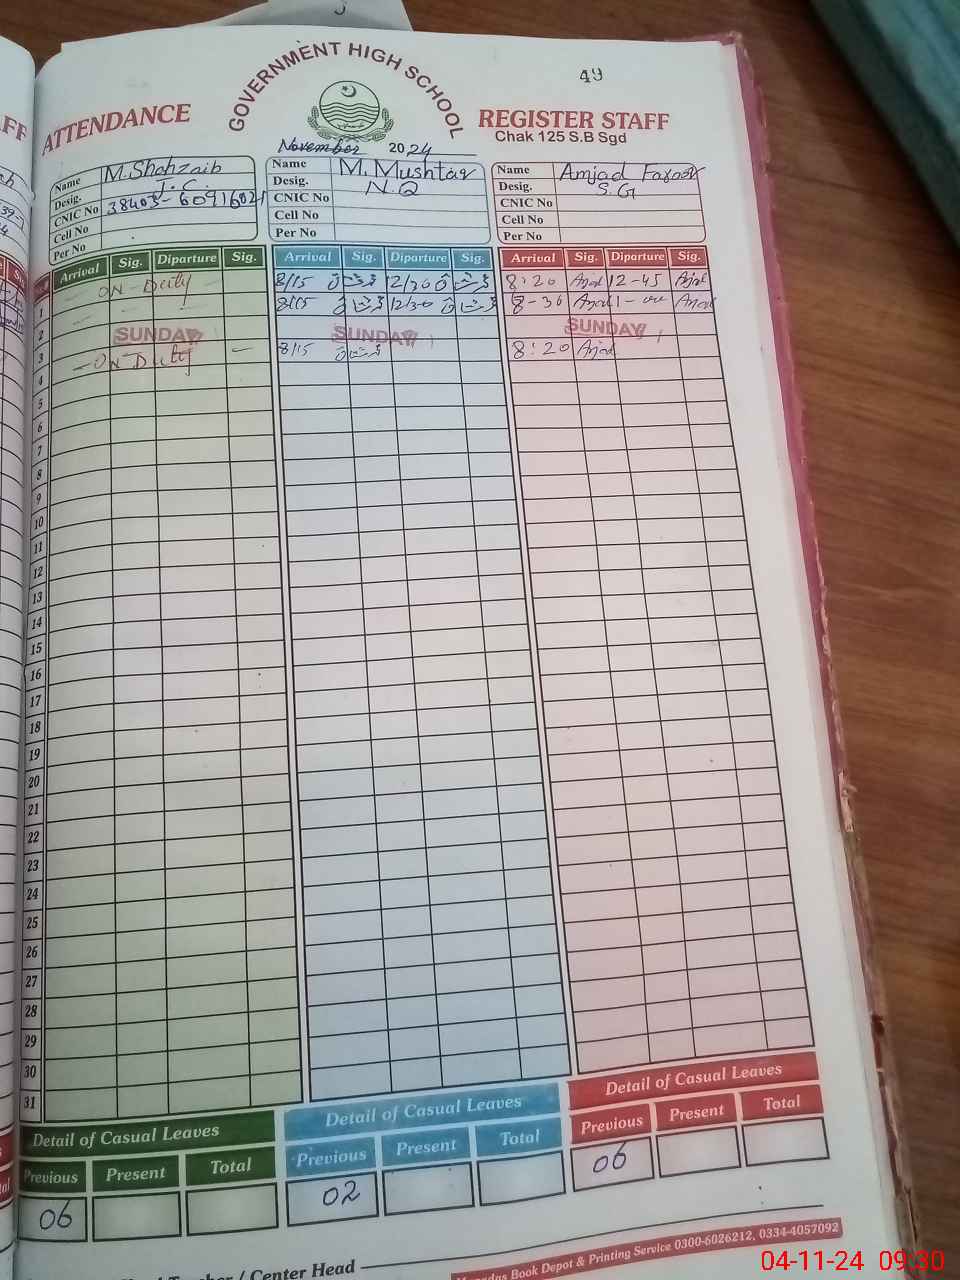 49
GOVERNMENT HIGH SCHOOL
ATTENDANCE
REGISTER STAFF
Chak 125 S.B Sgd
November 2024
Name M. Shahzaib
Desig. J.C.
CNIC No
Cell No
Per No
Name M. Mushtaq
Desig. N.Q
CNIC No
Cell No
Per No
Name Amjad Farooq
Desig. S.G
CNIC No
Cell No
Per No
Arrival Sig. Diparture Sig. Arrival Sig. Diparture Sig. Arrival Sig. Diparture Sig.
1 ON-Duty 8/15 12/30 8:20 Amjad 12-45 Amjad
2 8/15 12/30 8-30 Amjad 1-00 Amjad
3 SUNDAY SUNDAY SUNDAY
4 ON Duty 8/15 8:20 Amjad
5
6
7
8
9
10
11
12
13
14
15
16
17
18
19
20
21
22
23
24
25
26
27
28
29
30
31
Detail of Casual Leaves Detail of Casual Leaves Detail of Casual Leaves
Previous Present Total Previous Present Total Previous Present Total
06 02 06
/ Center Head
Book Depot & Printing Service 0300-6026212, 0334-4057092
04-11-24 09:30